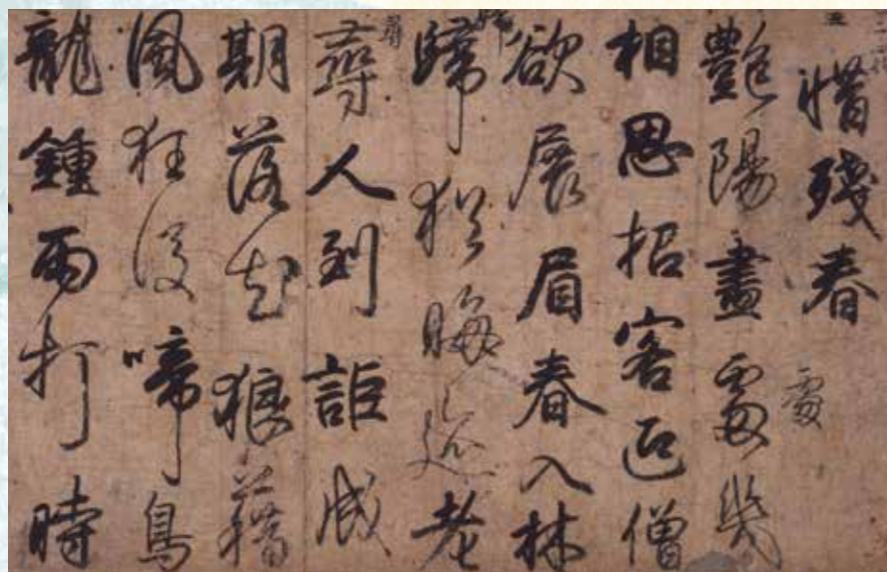 惜殘春
處
艷陽盡處幾
相思招客迎僧
欲展眉春入林
歸
歸猶晦迹老
尋
尋人到詎成
期落花狼藉
風狂後啼鳥
龍鍾雨打時